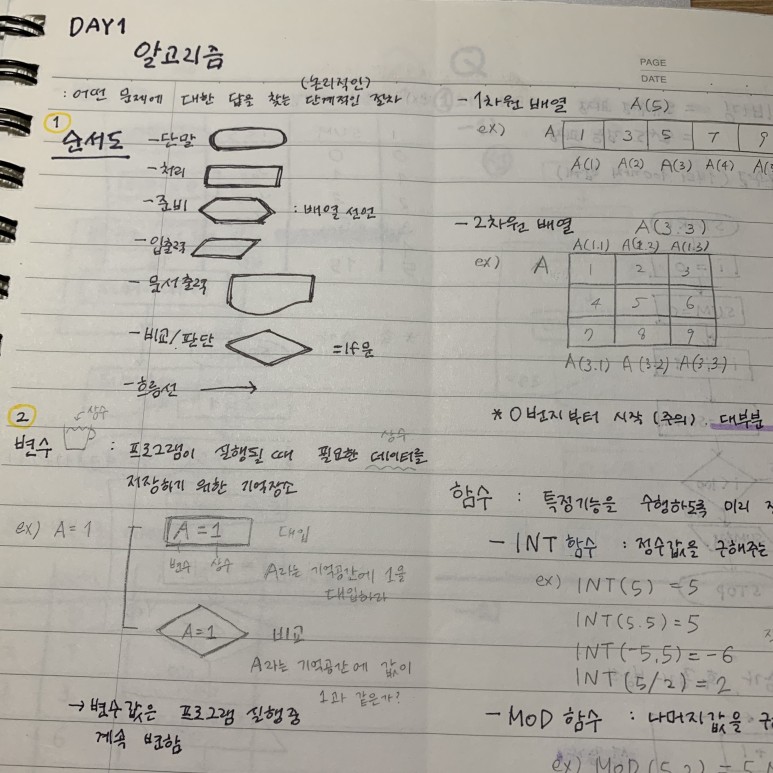 DAY1
알고리즘
(논리적인)
: 어떤 문제에 대한 답을 찾는 단계적인 절차
1
순서도
- 단말
- 처리
- 준비 : 배열 선언
- 입출력
- 문서출력
- 비교/판단 = If문
- 흐름선
2
상수
변수 : 프로그램이 실행될 때 필요한 데이터를
상수
저장하기 위한 기억장소
ex) A=1
A=1 대입
변수 상수
A라는 기억공간에 1을
대입하라
A=1 비교
A라는 기억공간에 값이
1과 같은가?
→ 변수값은 프로그램 실행중
계속 변함
PAGE
DATE
- 1차원 배열 A(5)
ex) A 1 3 5 7 9
A(1) A(2) A(3) A(4)
- 2차원 배열 A(3.3)
A(1.1) A(1.3)
ex) A 1 2 3
4 5 6
7 8 9
A(3.1) A(3.2) A(3.3)
* 0번지부터 시작 (주의). 대부분
함수 : 특정기능을 수행하도록 미리
- INT 함수 : 정수값을 구해주는
ex) INT(5) = 5
INT(5.5) = 5
INT(-5.5) = -6
INT(5/2) = 2
- MOD 함수 : 나머지값을
ex) MOD(5.2) = 5
STOP